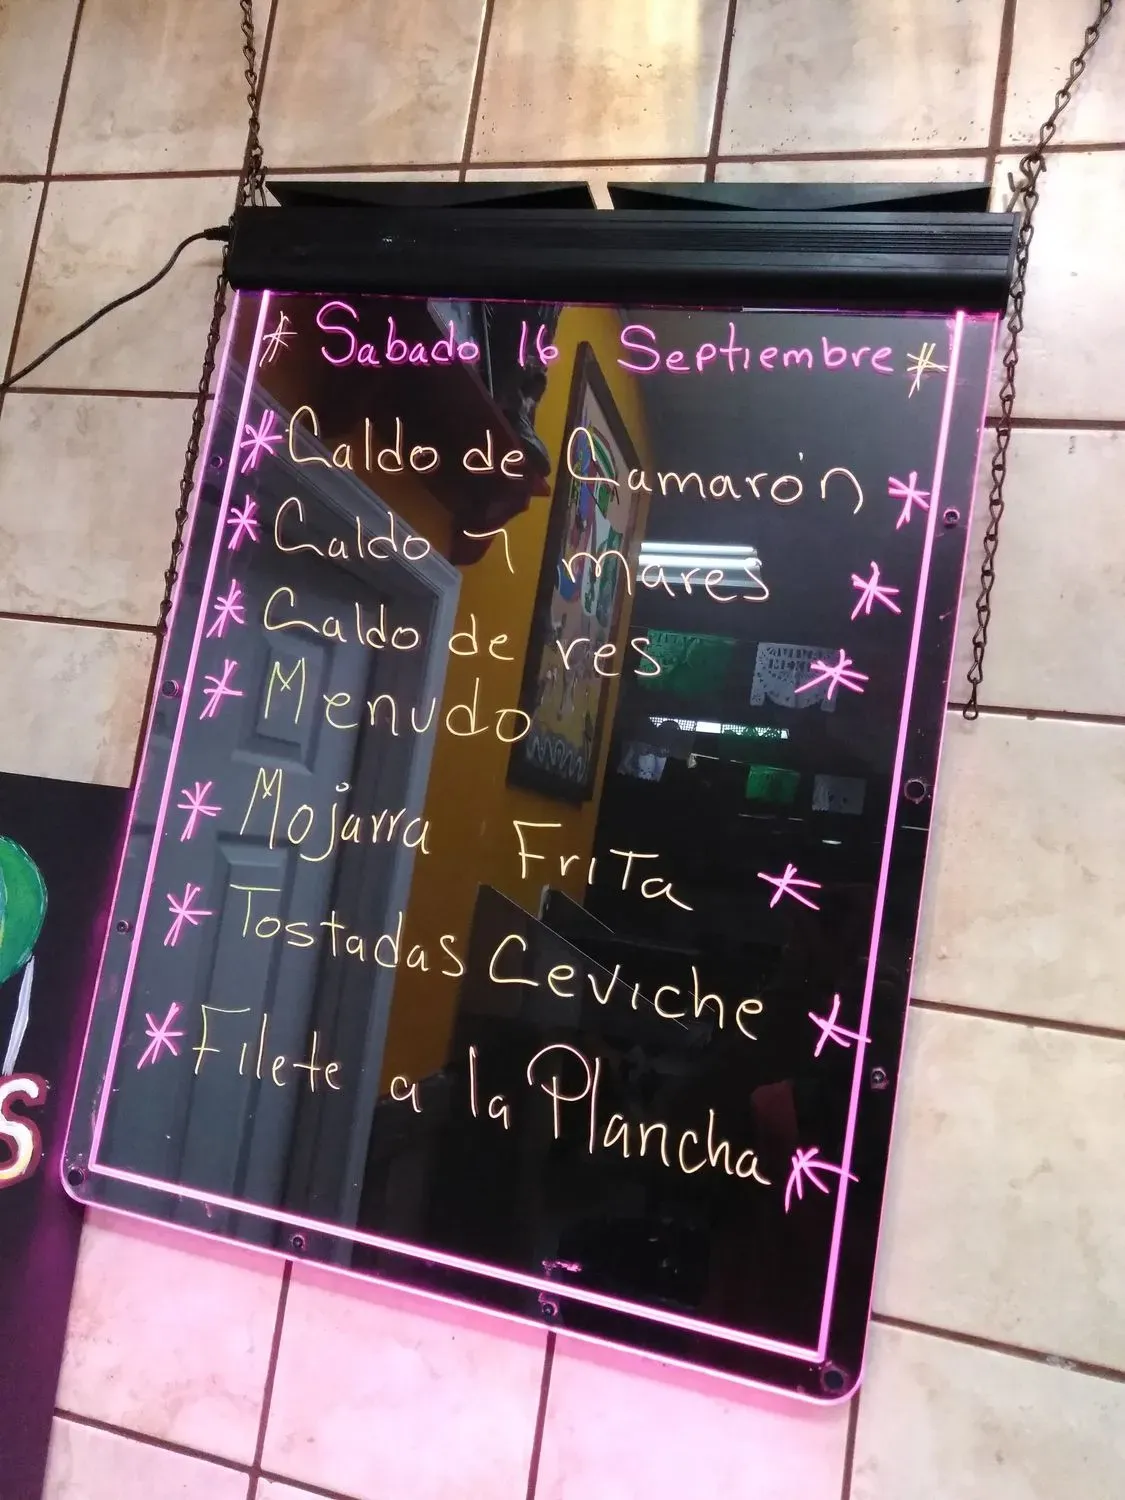 * Sabado 16 Septiembre *
* Caldo de Camarón *
* Caldo 7 mares *
* Caldo de res *
* Menudo
* Mojarra Frita *
* Tostadas Ceviche *
* Filete a la Plancha *
S